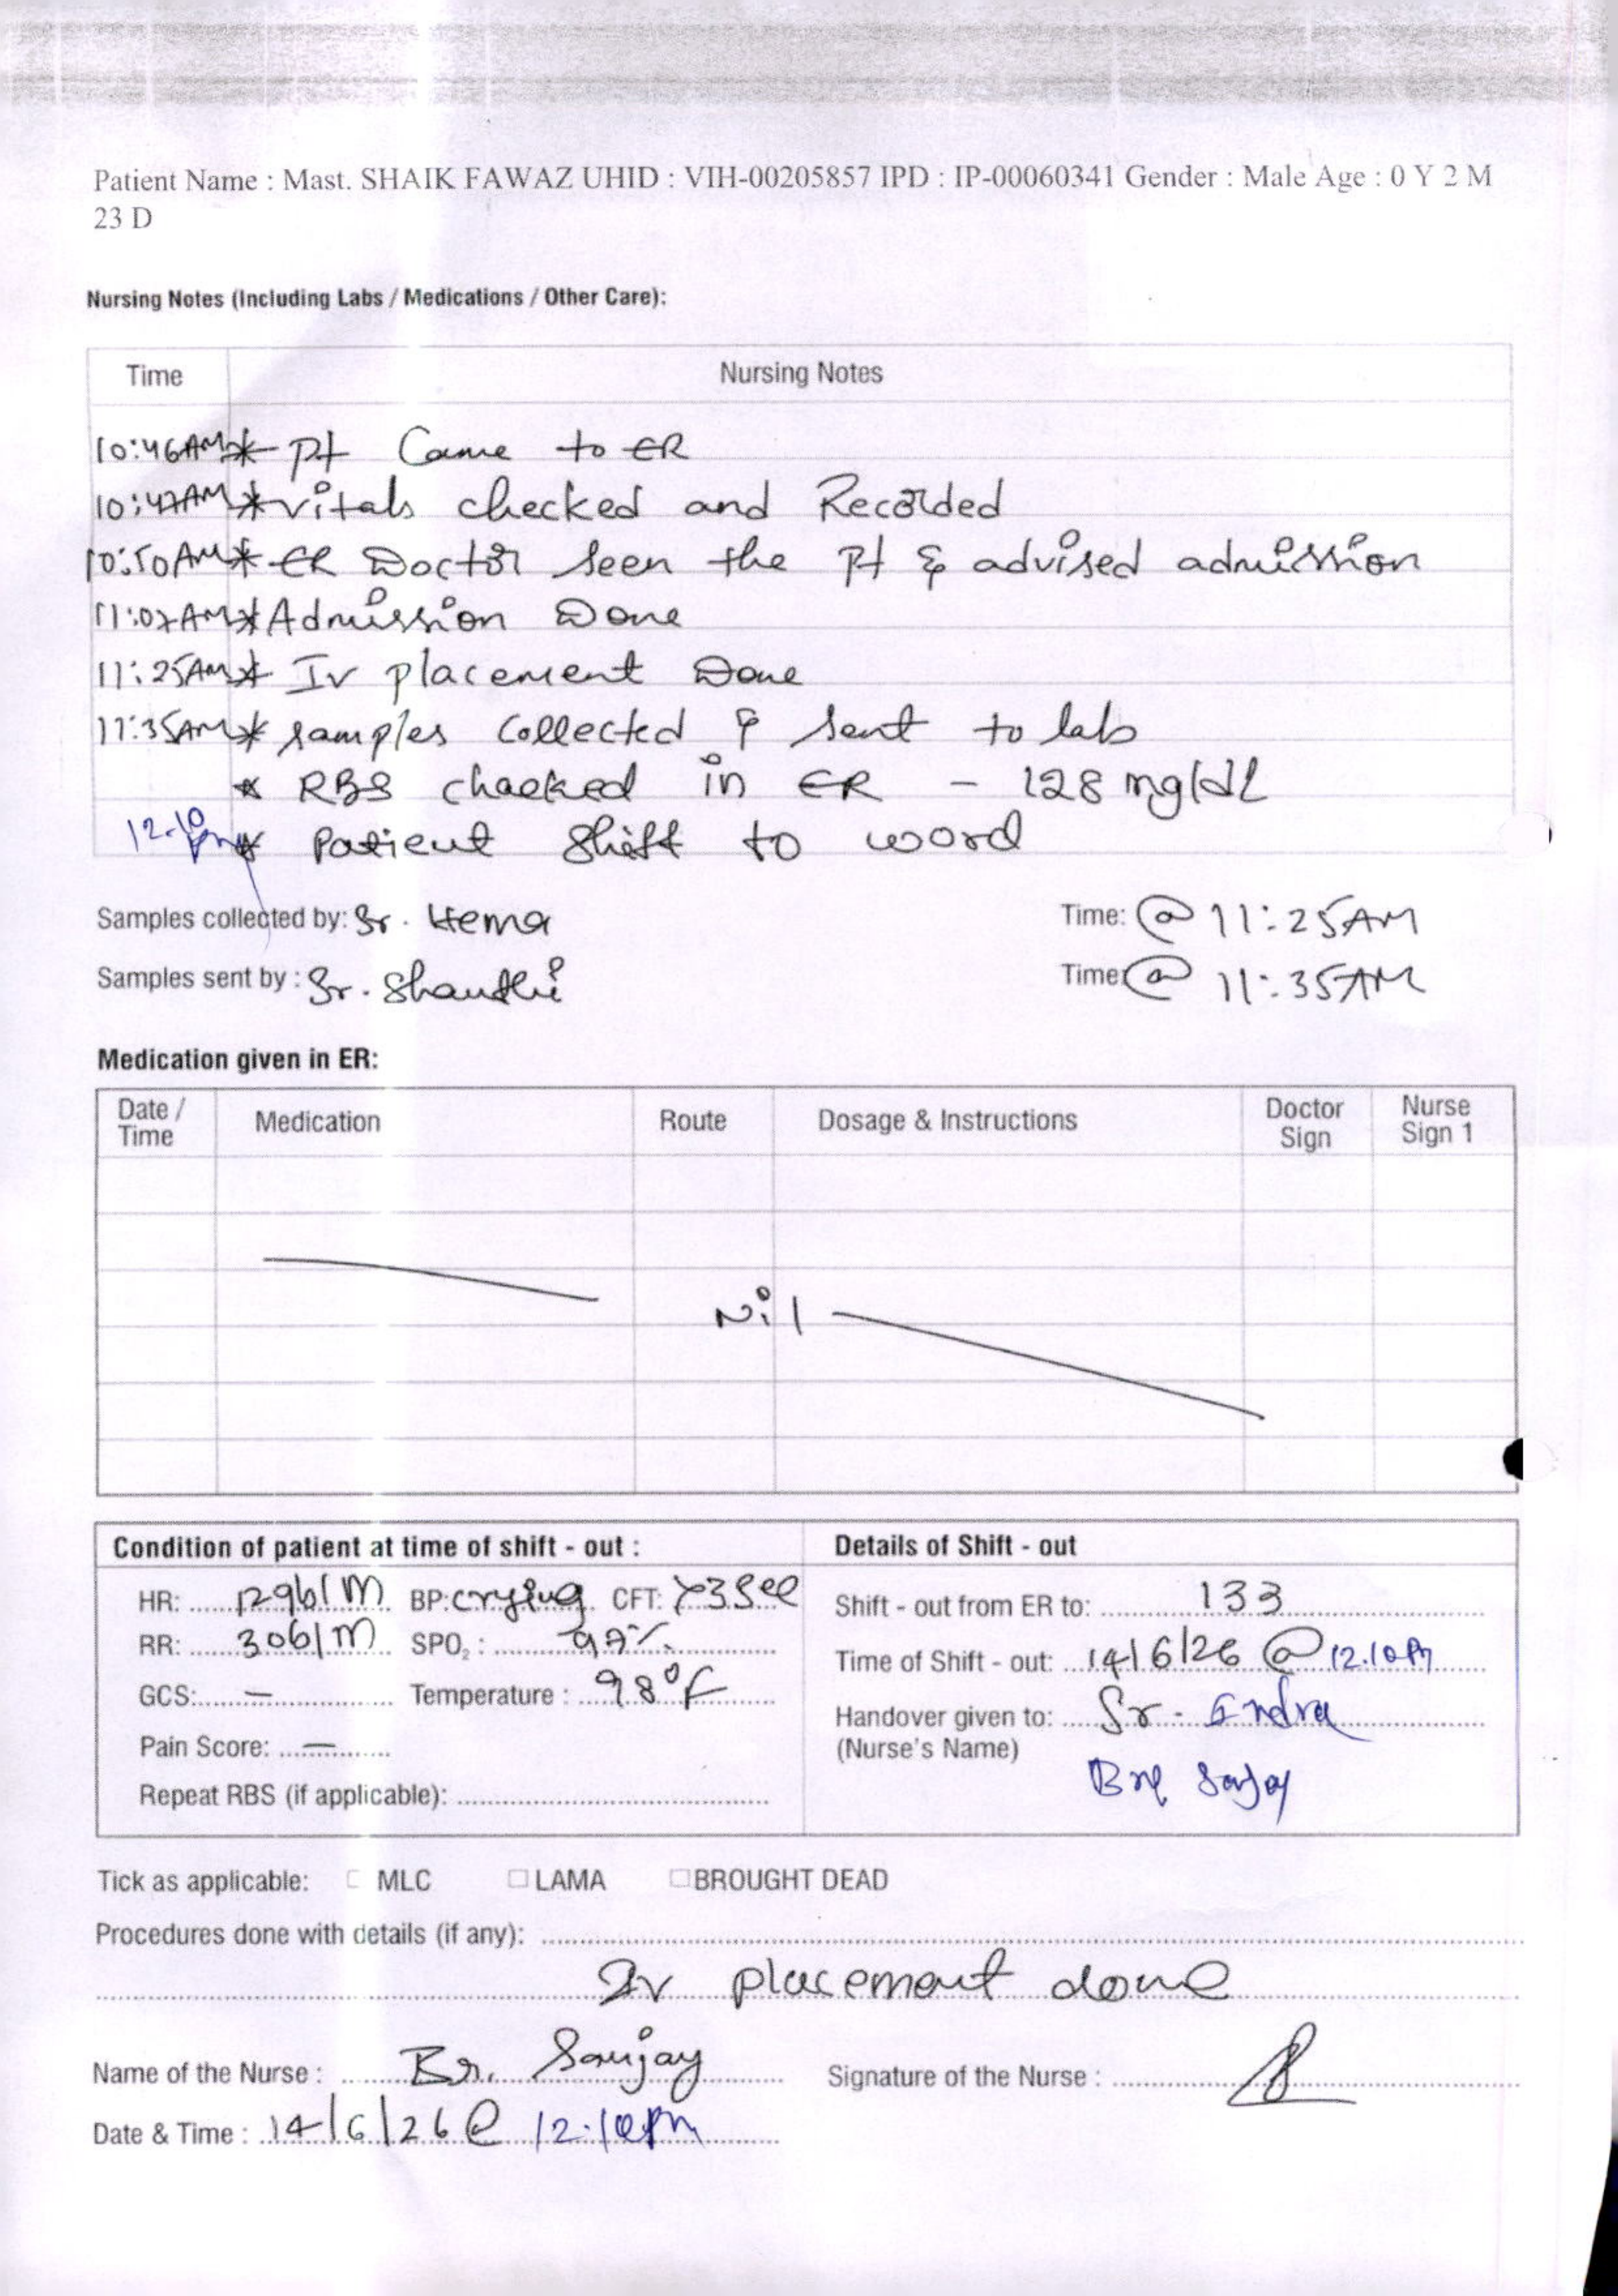 Patient Name : Mast. SHAIK FAWAZ UHID : VIH-00205857 IPD : IP-00060341 Gender : Male Age : 0 Y 2 M
23 D
Nursing Notes (Including Labs / Medications / Other Care):
Time Nursing Notes
10:46AM * Pt Came to ER
10:47AM * vitals checked and Recorded
10:50AM * ER Doctor seen the Pt & advised admission
11:07AM * Admission Done
11:25AM * Iv placement Done
11:35AM * samples collected & sent to lab
* RBS chaeked in ER - 128 mg/dL
12.10pm * Patient Shift to word
Samples collected by: Sr. Hema Time: @ 11:25AM
Samples sent by : Sr. Shanthi Time: @ 11:35AM
Medication given in ER:
Date / Time Medication Route Dosage & Instructions Doctor Sign Nurse Sign 1
Nil
Condition of patient at time of shift - out : Details of Shift - out
HR: 129b/m BP: crying CFT: >3Sec Shift - out from ER to: 133
RR: 30b/m SPO2 : 99% Time of Shift - out: 14/6/26 @ 12.10Pm
GCS: — Temperature : 98°F Handover given to: Sr - Indra
Pain Score: — (Nurse's Name) Sanjay
Repeat RBS (if applicable):
Tick as applicable: MLC LAMA BROUGHT DEAD
Procedures done with details (if any):
Iv placement done
Name of the Nurse : Br. Sanjay Signature of the Nurse :
Date & Time : 14/6/26 @ 12.10pm